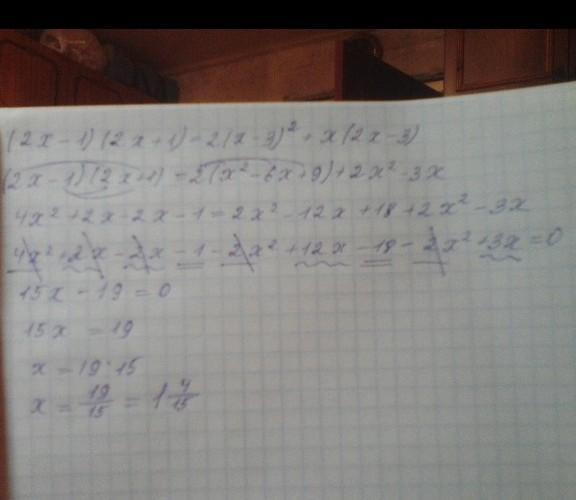 (2x-1)(2x+1)=2(x-3)²+x(2x-3)
(2x-1)(2x+1)=2(x²-6x+9)+2x²-3x
4x²+2x-2x-1=2x²-12x+18+2x²-3x
4x²+2x-2x-1-2x²+12x-18-2x²+3x=0
15x-19=0
15x=19
x=19:15
x=19/15=1 4/15